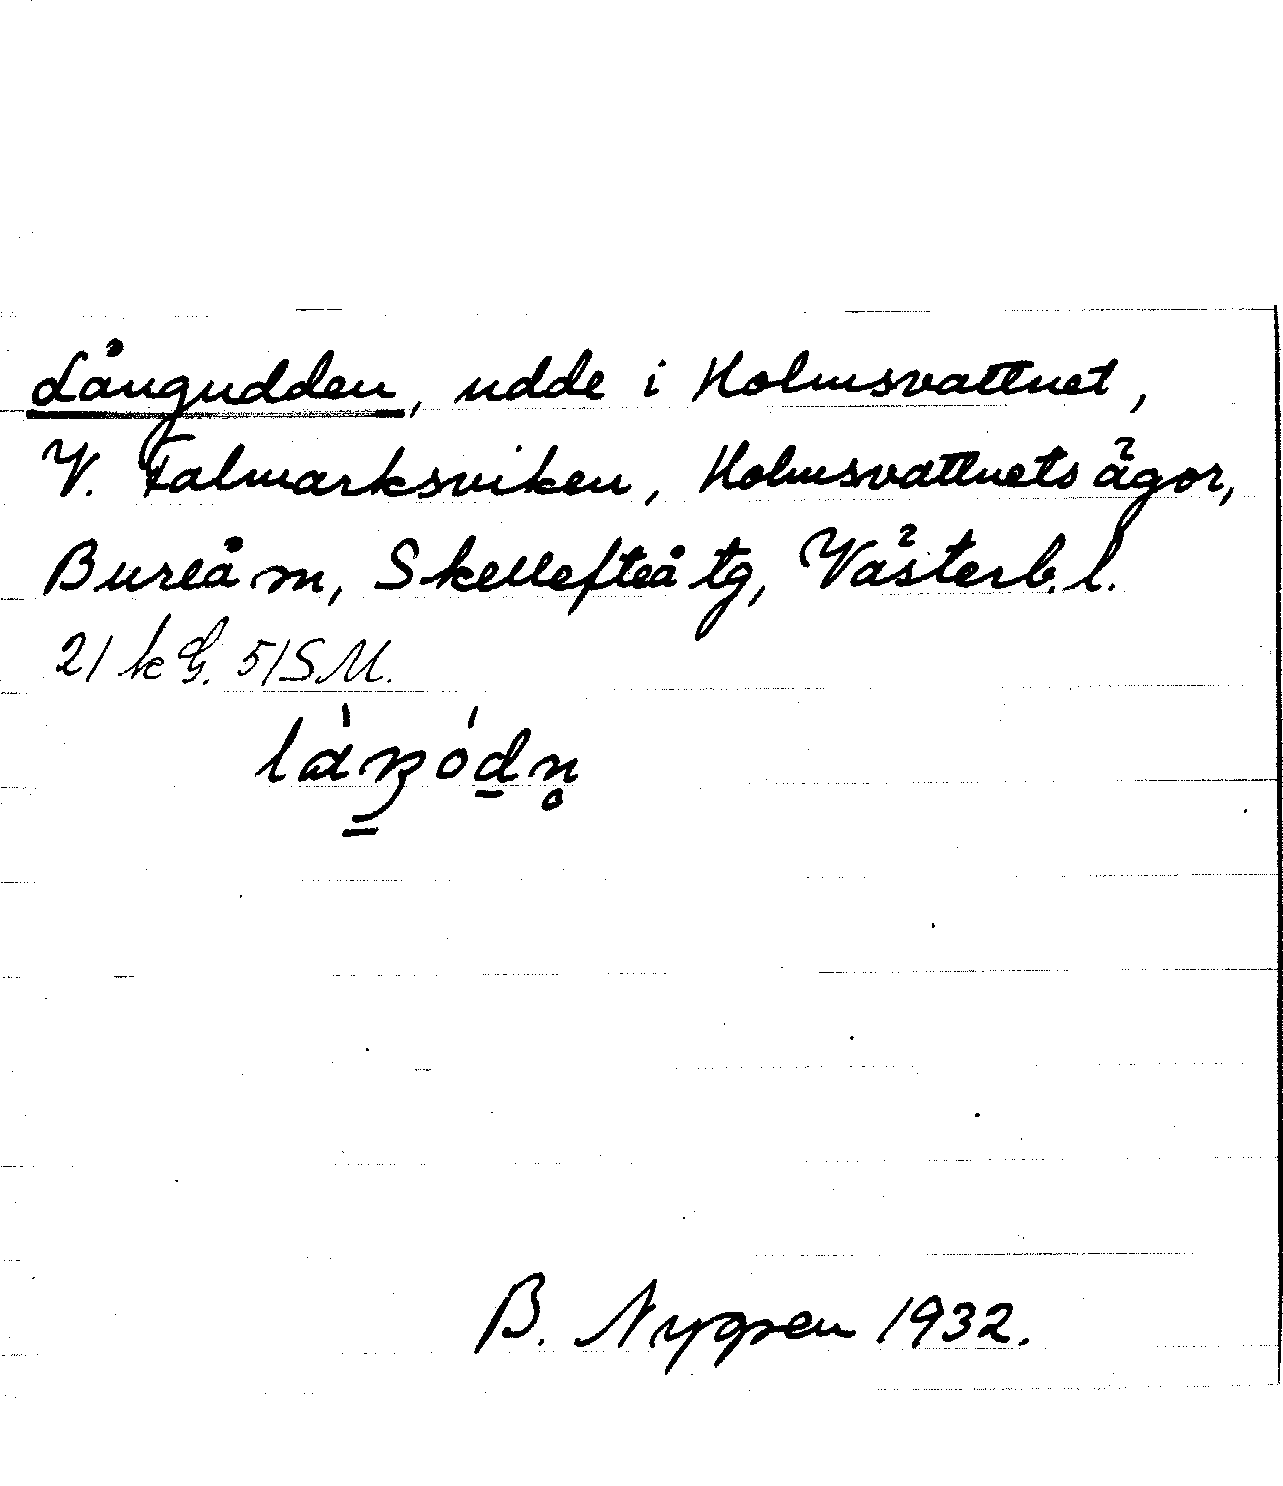 Långudden, udde i Holmsvattnet,
V. Falmarksviken, Holmsvattnets ägor,
Bureå sn, Skellefteå tg, Västerb. l.
21 k G. 51SM.
B. Nygren 1932.